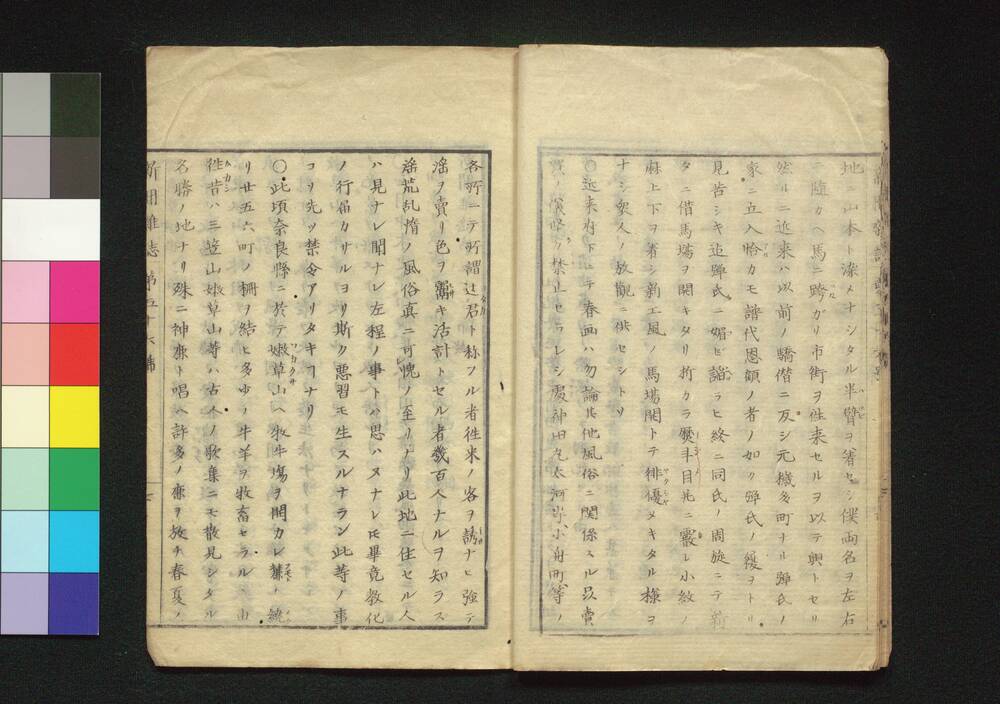 地山本ト染メナシタル半臂ヲ著セシ僕両名ヲ左右
ニ随カヘ馬ニ跨ガリ市街ヲ往来セルヲ以テ興トセリ
然ルニ近来ハ以前ノ驕僭ニ反シ元穢多町ナル弾氏ノ
家ニ立入恰カモ譜代恩顧ノ者ノ如ク弾氏ノ援ヲトリ
見告シキ近弾氏ニ媚ビ諂ラヒ終ニ同氏ノ周旋ニテ新
タニ借馬場ヲ開キタリ折カラ熨斗目光ニ霰シ小紋ノ
麻上下ヲ著シ新工風ノ馬場開トテ俳優メキタル様ヲ
ナシ衆人ノ放観ニ供セシトソ
○近来府下ニテ春画ハ勿論其他風俗ニ関係スル品売
買ノ儀堅ク禁止セラレシ処神田九太河岸小舟町等ノ
各所ニテ所謂辻君ト称フル者往来ノ客ヲ誘ナヒ強テ
淫ヲ売リ色ヲ鬻キ活計トセル者幾百人ナルヲ知ラス
淫荒乱惰ノ風俗真ニ可愧ノ至リナリ此地ニ住セル人
ハ見ナレ聞ナレ左程ノ事トハ思ハヌナレ𪜈畢竟教化
ノ行届カサルヨリ斯ク悪習モ生スルナラン此等ノ事
コソ先ツ禁令アリタキヿナリ
○此頃奈良県ニ於テ嫩草山ヘ牧牛場ヲ開カレ麓ノ繞
リ廿五六町ノ柵ヲ結ヒ多少ノ牛羊ヲ牧畜セラル此山
往昔ハ三笠山嫩草山等ハ古人ノ歌集ニモ散見シタル
名勝ノ地ナリ殊ニ神鹿ト唱ヘ許多ノ鹿ヲ放チ春夏ノ
新聞雑誌 第五十六号